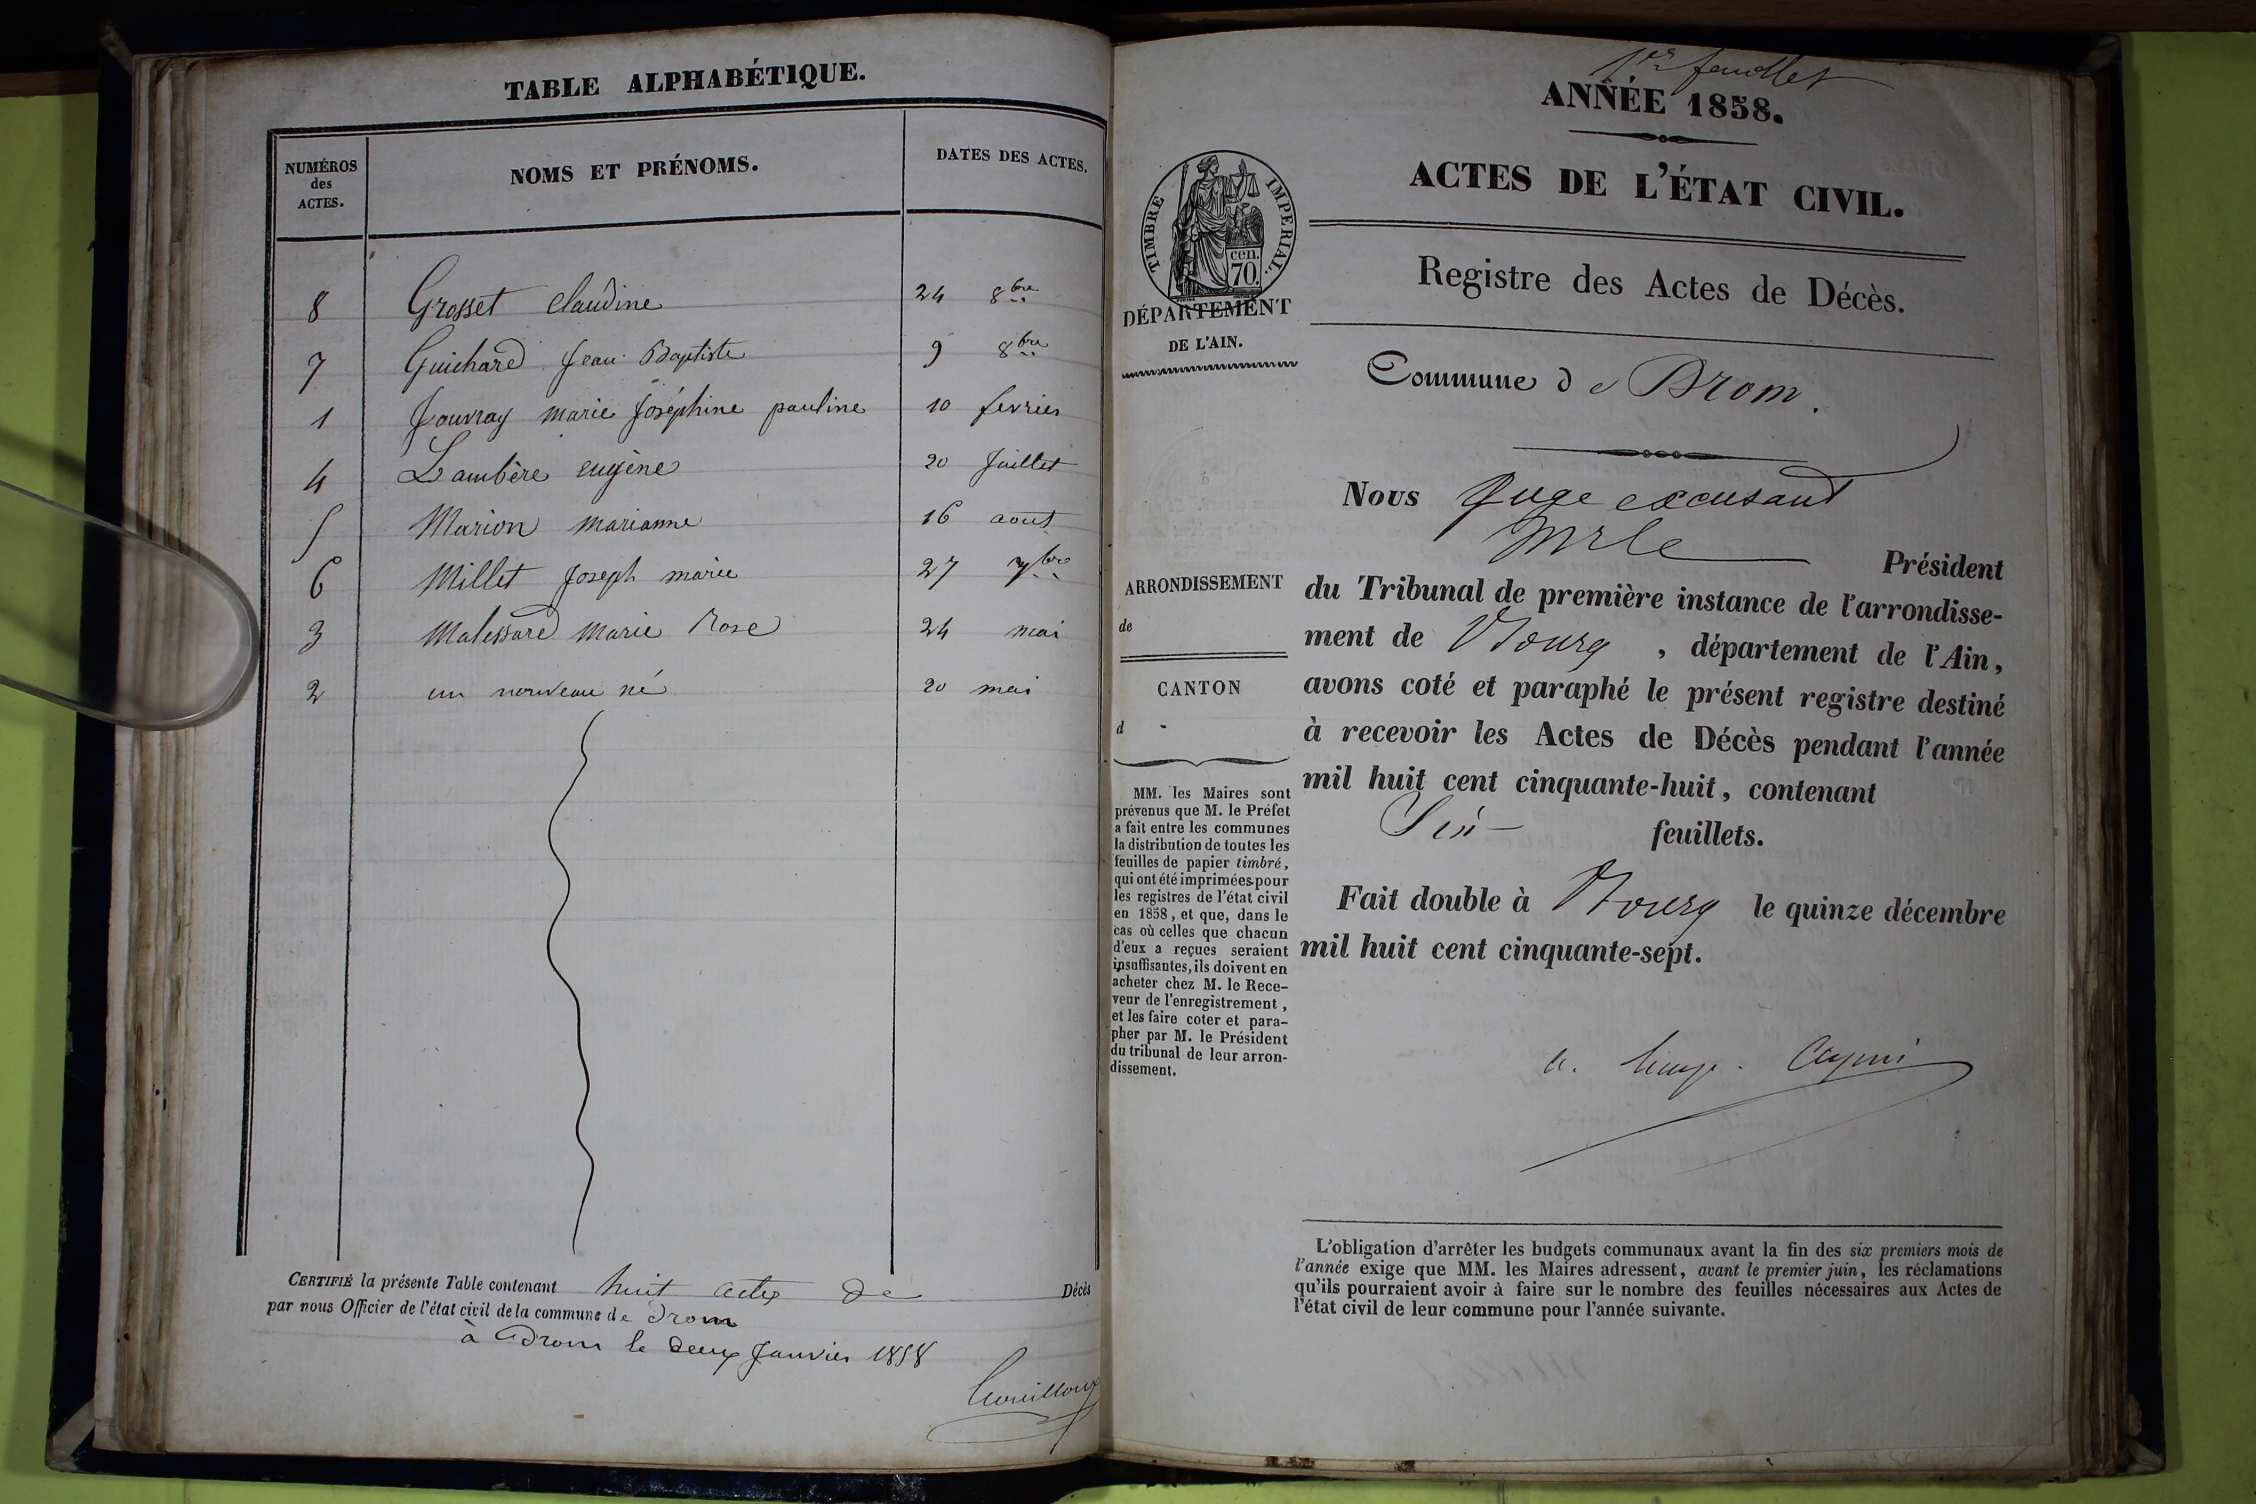 TABLE ALPHABÉTIQUE.
NUMÉROS
des
ACTES.
NOMS ET PRÉNOMS.
DATES DES ACTES.
8 Grosset Claudine 24 8bre
7 Guichard Jean Baptiste 9 8bre
1 Jouvray marie Joséphine pauline 10 fevrier
4 Lambère eugène 20 Juillet
5 Marion marianne 16 aout
6 Millet Joseph marie 27 7bre
3 Malessard Marie Rose 24 mai
2 un nouveau né 20 mai
CERTIFIÉ la présente Table contenant huit actes de Décès
par nous Officier de l'état civil de la commune de Drom
à Drom le deux Janvier 1858
1er feuillet
ANNÉE 1858.
ACTES DE L'ÉTAT CIVIL.
TIMBRE IMPERIAL.
cen.
70.
DÉPARTEMENT
DE L'AIN.
Registre des Actes de Décès.
Commune de Drom.
Nous Juge excusant
Mr le
Président
du Tribunal de première instance de l'arrondisse-
ment de Bourg, département de l'Ain,
avons coté et paraphé le présent registre destiné
à recevoir les Actes de Décès pendant l'année
mil huit cent cinquante-huit, contenant
Six feuillets.
Fait double à Bourg le quinze décembre
mil huit cent cinquante-sept.
ARRONDISSEMENT
de
CANTON
d
MM. les Maires sont
prévenus que M. le Préfet
a fait entre les communes
la distribution de toutes les
feuilles de papier timbré,
qui ont été imprimées pour
les registres de l'état civil
en 1858, et que, dans le
cas où celles que chacun
d'eux a reçues seraient
insuffisantes, ils doivent en
acheter chez M. le Rece-
veur de l'enregistrement,
et les faire coter et para-
pher par M. le Président
du tribunal de leur arron-
dissement.
L'obligation d'arrêter les budgets communaux avant la fin des six premiers mois de
l'année exige que MM. les Maires adressent, avant le premier juin, les réclamations
qu'ils pourraient avoir à faire sur le nombre des feuilles nécessaires aux Actes de
l'état civil de leur commune pour l'année suivante.